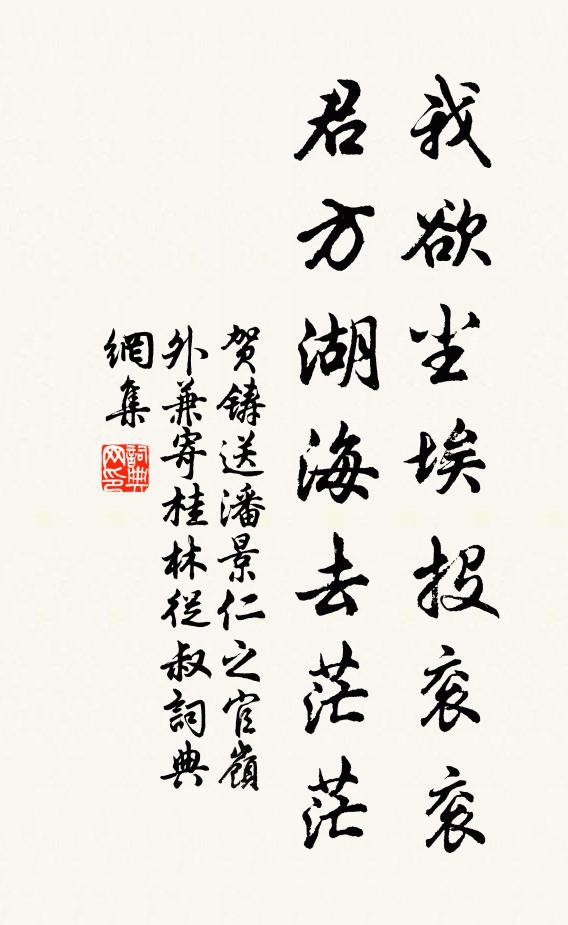 我欲尘埃投衮衮
君方湖海去茫茫
贺铸送潘景仁之官嶺
外兼寄桂林從叔詞典
網集
詞典
网印